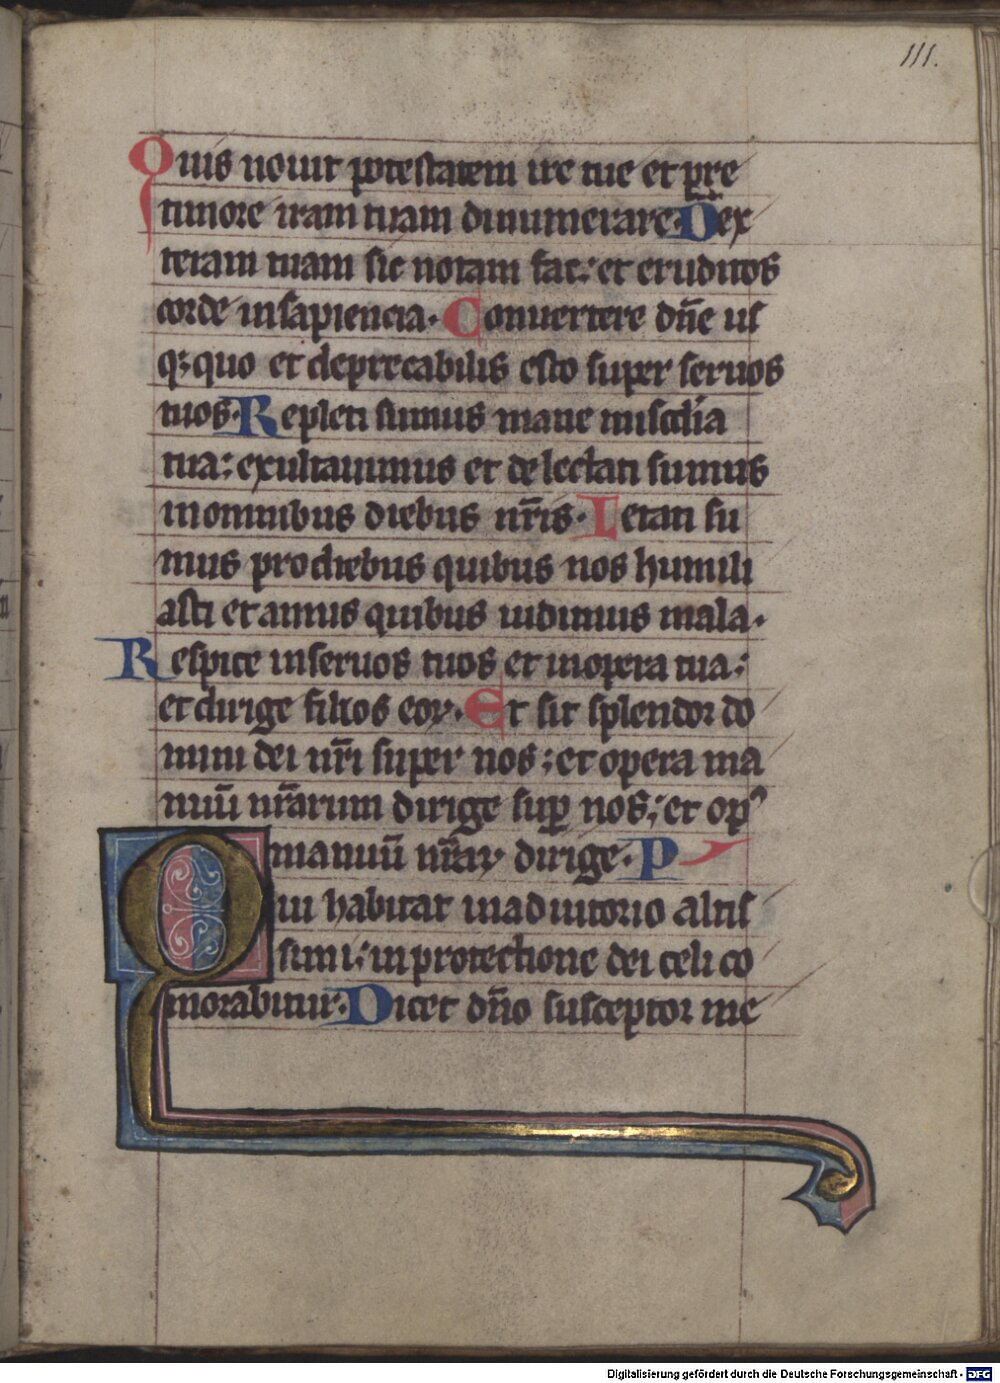 111.
Quis nouit potestatem ire tue et pre
timore iram tuam dinumerare. Dex
teram tuam sic notam fac: et eruditos
corde in sapiencia. Conuertere dn̄e us
qꝫ quo et deprecabilis esto super seruos
tuos. Repleti sumus mane mis̄cdia
tua: exultauimus et delectati sumus
in omnibus diebus nr̄is. Letati su
mus pro diebus quibus nos humili
asti et annis quibus uidimus mala.
Respice in seruos tuos et in opera tua:
et dirige filios eoꝝ. Et sit splendor do
mini dei nr̄i super nos: et opera ma
nuū nr̄arum dirige suꝑ nos: et op̉
manuū nr̄aꝝ dirige. P
Qui habitat in adiutorio altis
simi: in protectione dei celi co
morabitur. Dicet dn̄o susceptor me
Digitalisierung gefördert durch die Deutsche Forschungsgemeinschaft - DFG